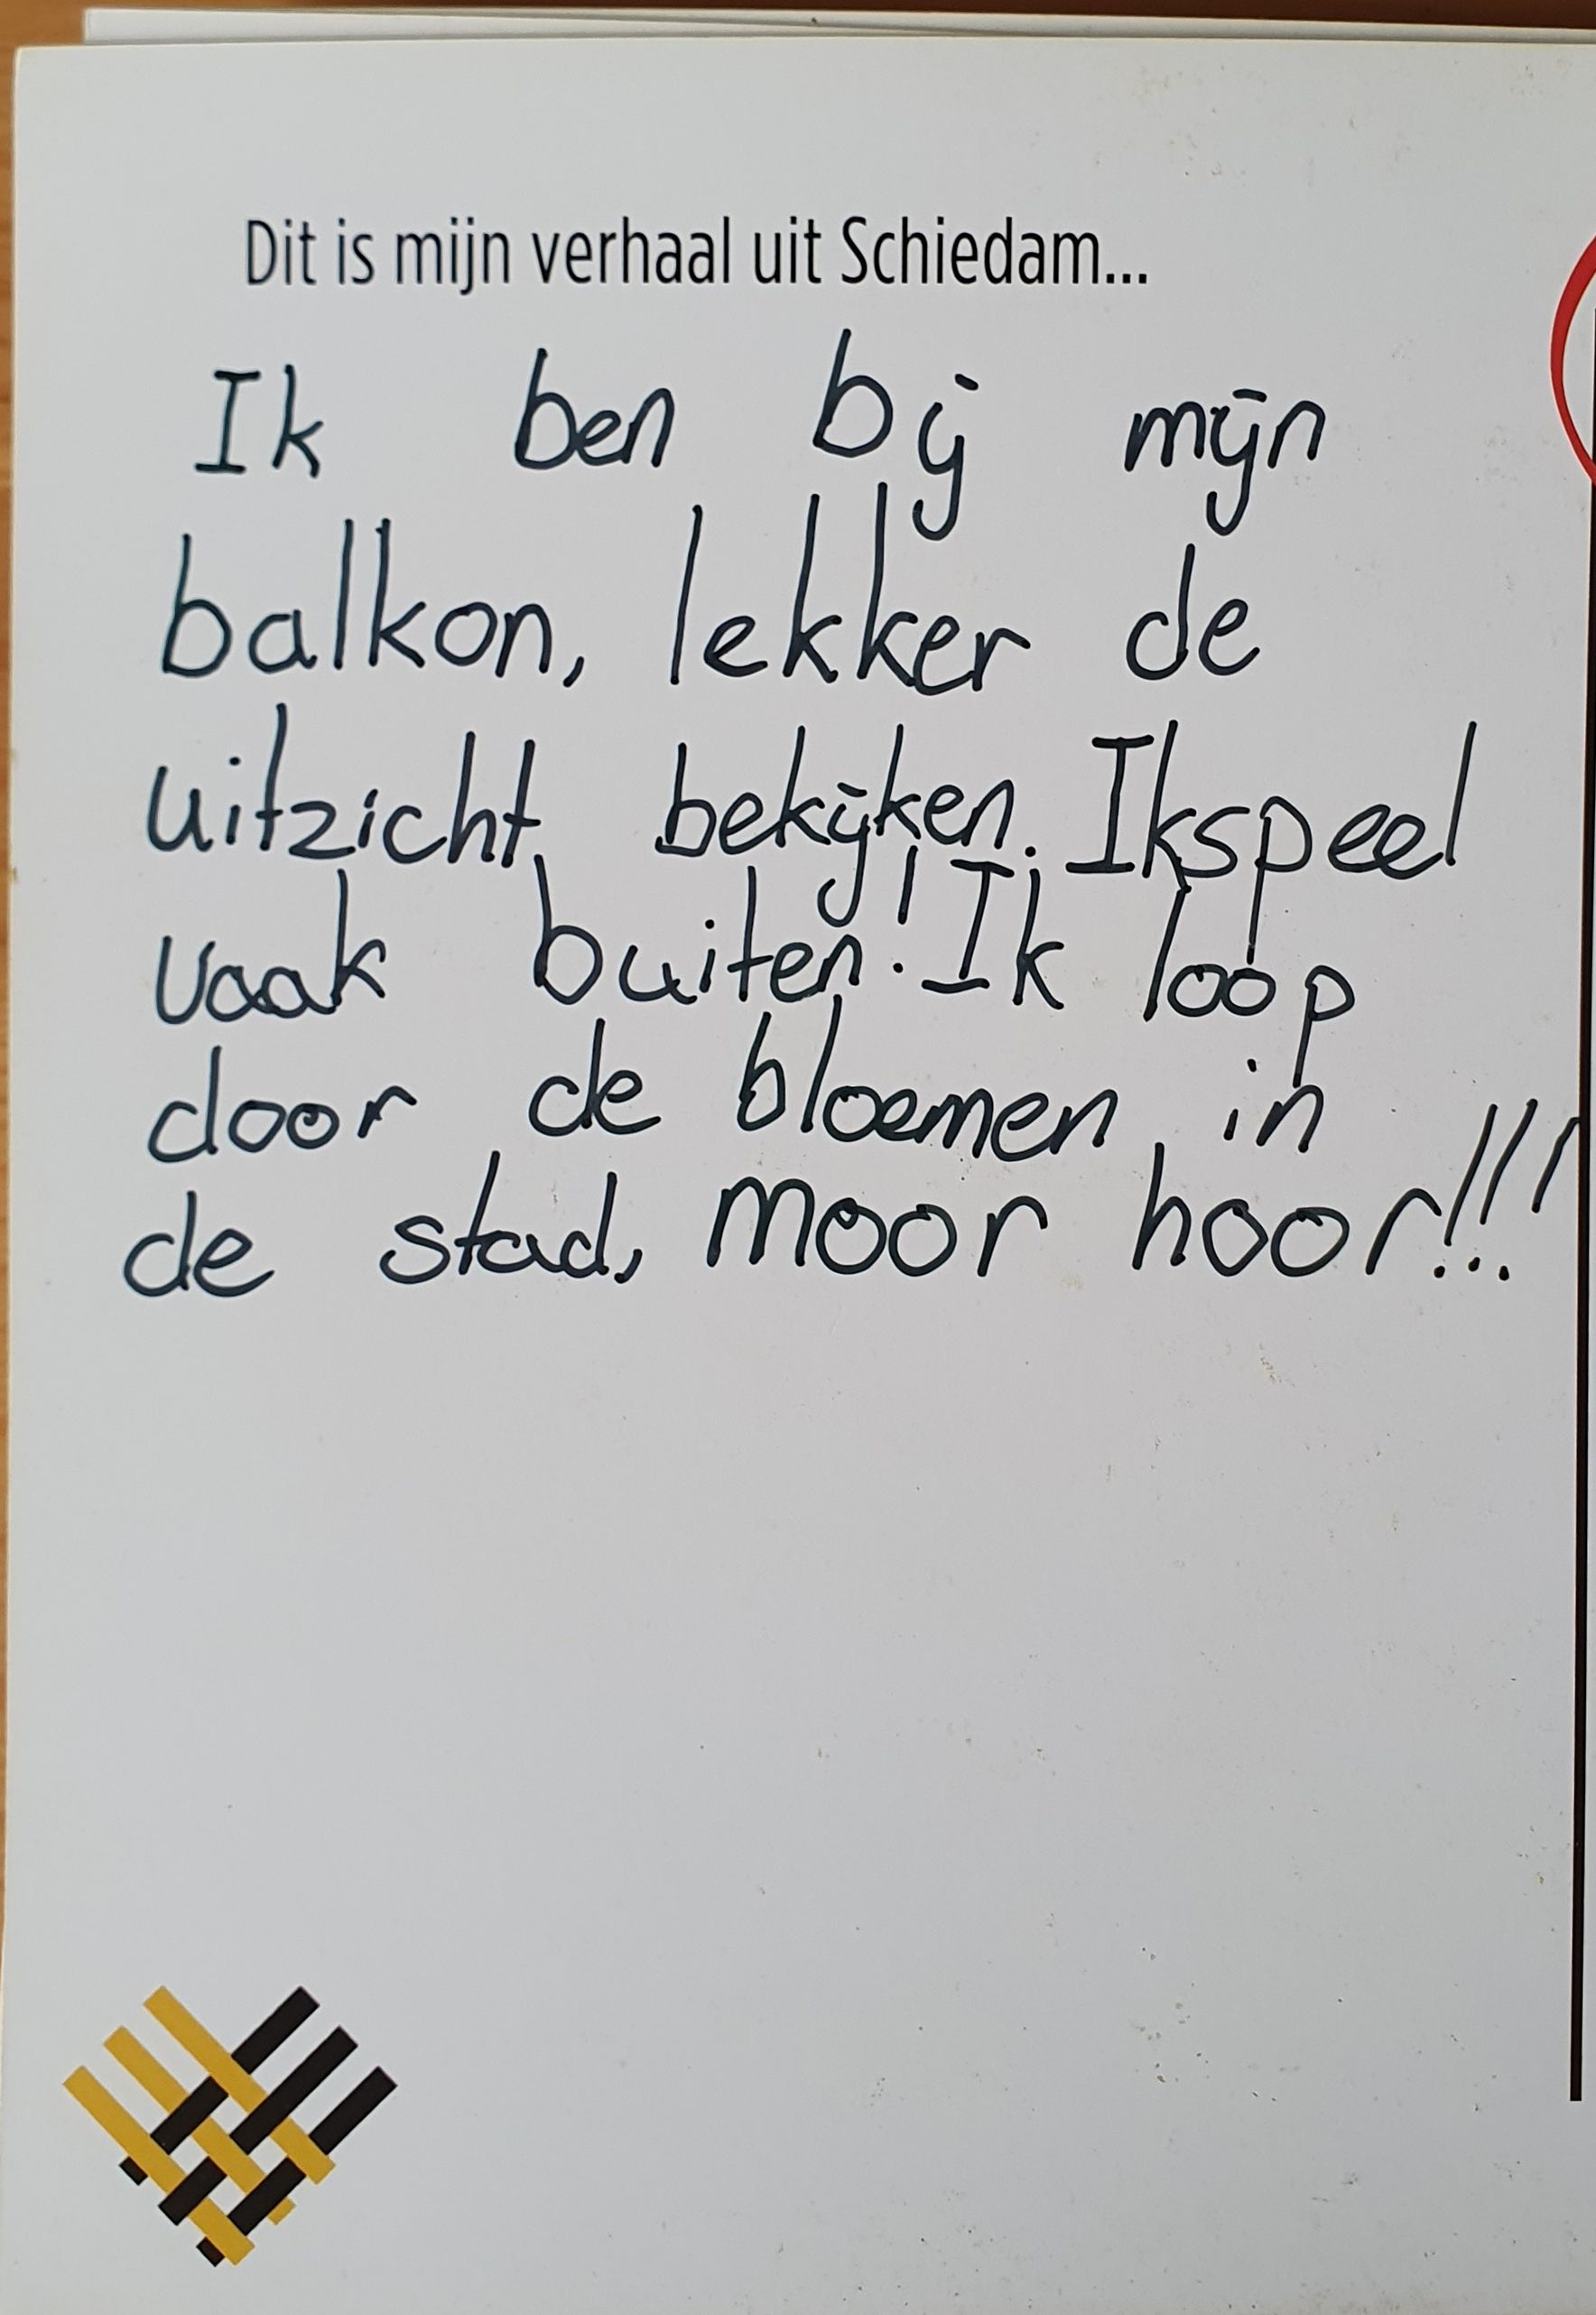 Dit is mijn verhaal uit Schiedam...
Ik ben bij mijn
balkon, lekker de
uitzicht bekijken. Ik speel
vaak buiten! Ik loop
door de bloemen in
de stad, moor hoor!!!